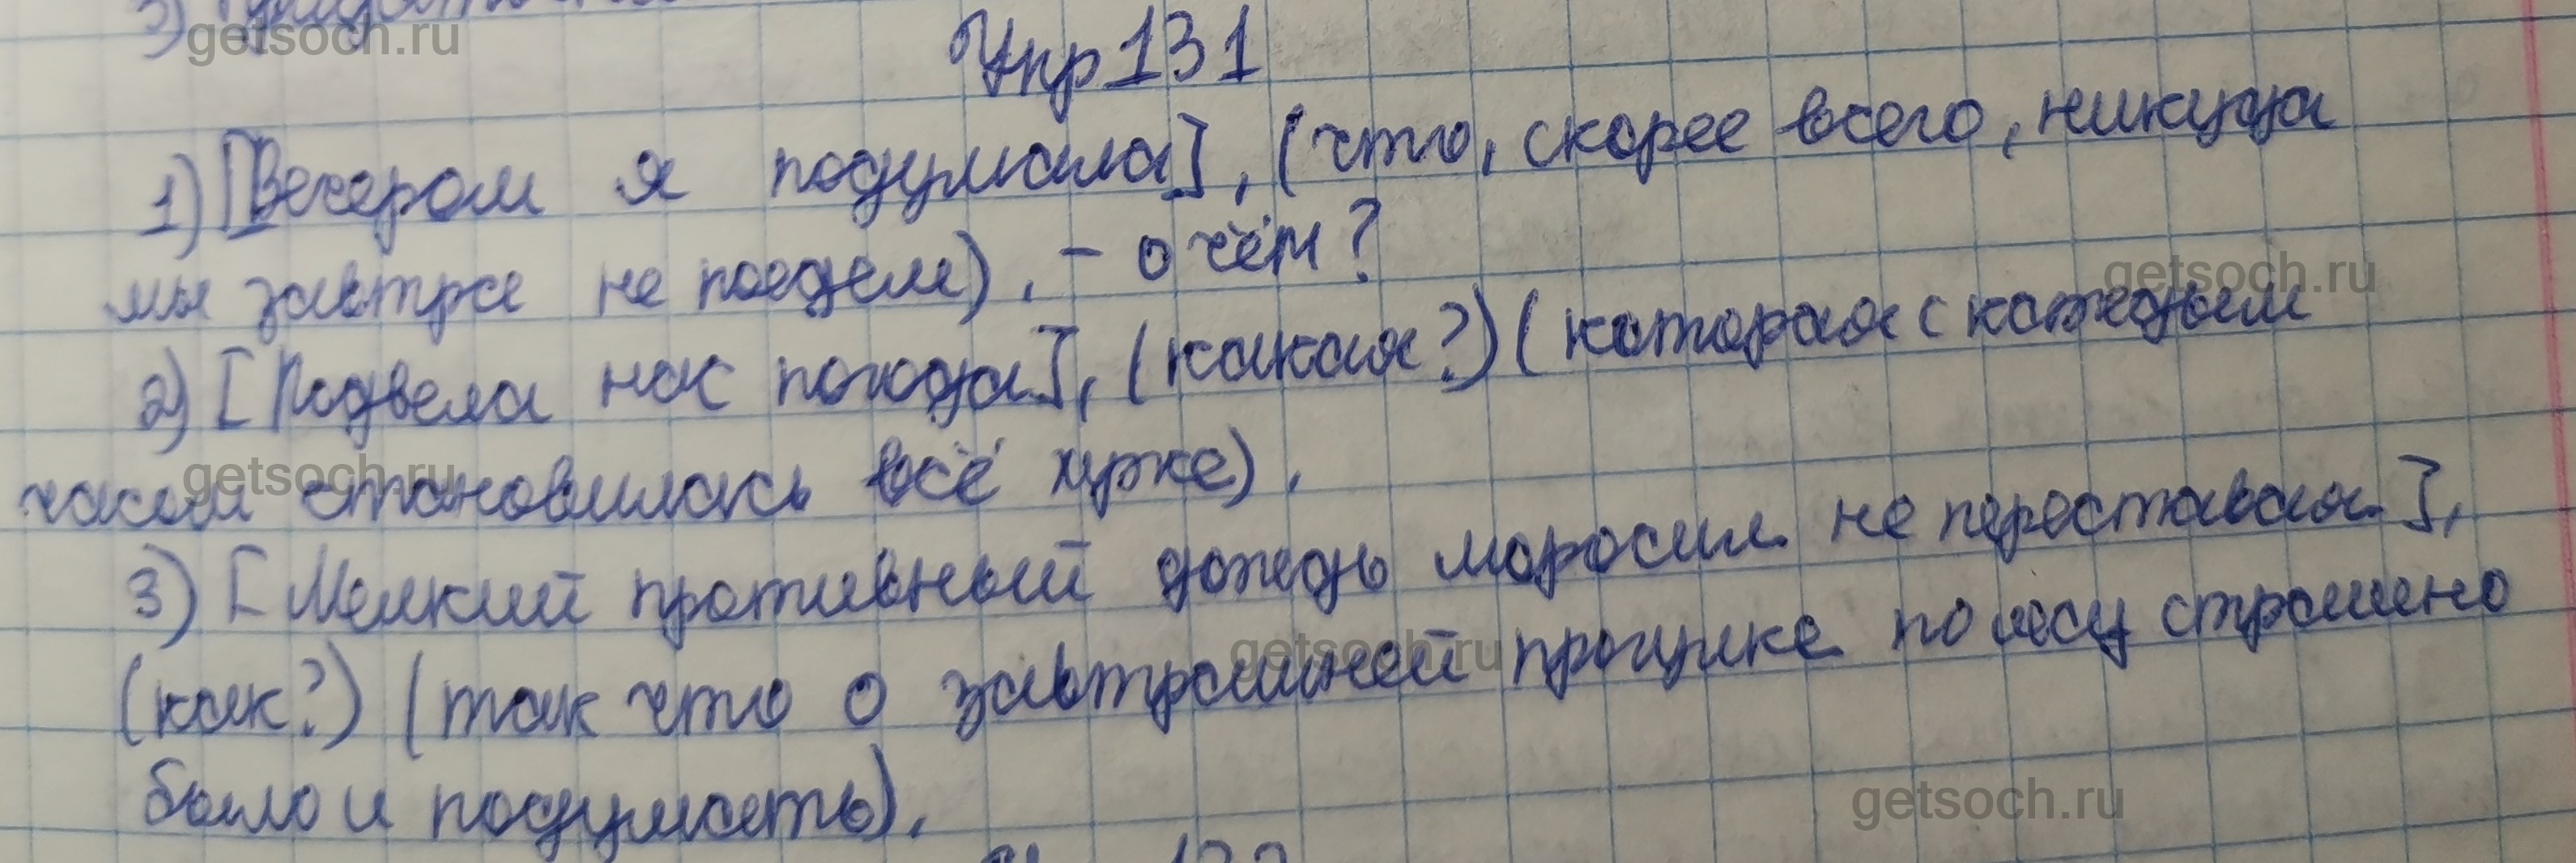 Упр 131
1) [Вечером я подумала], (что, скорее всего, никуда
мы завтра не поедем). - о чём?
2) [Подвела нас погода], (какая?) (которая с каждым
часом становилась всё хуже).
3) [Мелкий противный дождь моросил не переставая],
(как?) (так что о завтрашней прогулке по лесу страшно
было и подумать).
getsoch.ru
getsoch.ru
getsoch.ru
getsoch.ru
getsoch.ru